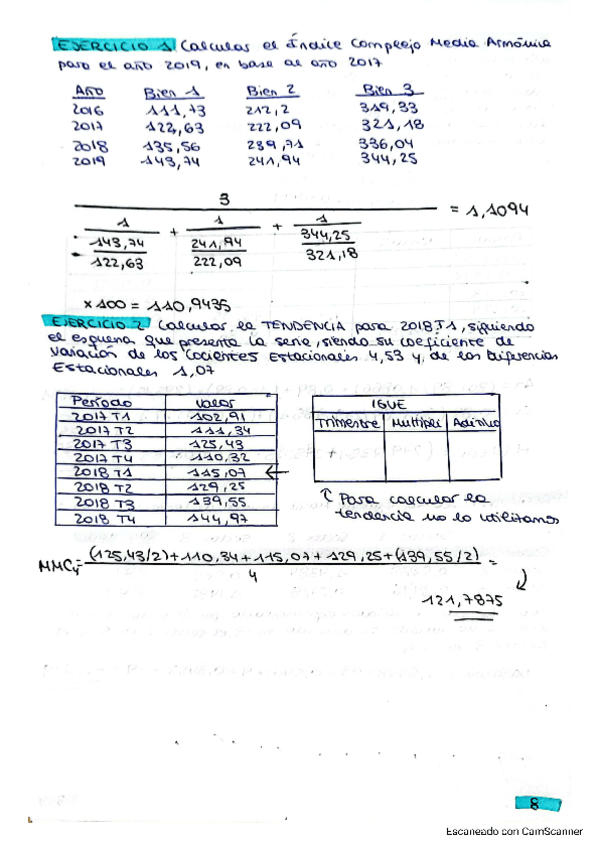 EJERCICIO 1 Calcular el Índice Complejo Media Armónica
para el año 2019, en base al año 2017
Año Bien 1 Bien 2 Bien 3
2016 111,73 212,2 319,33
2017 122,63 222,09 321,18
2018 135,56 239,71 336,04
2019 143,74 241,94 344,25
3
1 + 1 + 1 = 1,1094
143,74 241,94 344,25
122,63 222,09 321,18
x100 = 110,9435
EJERCICIO 2 Calcular la TENDENCIA para 2018T1, siguiendo
el esquema que presenta la serie, siendo su coeficiente de
Variación de los Cocientes Estacionales 4,53 y de las Diferencias
Estacionales 1,07
Período Valor
2017 T1 102,91
2017 T2 111,34
2017 T3 125,43
2017 T4 110,32
2018 T1 115,07 ←
2018 T2 129,25
2018 T3 139,55
2018 T4 144,97
IGUE
Trimestre Multipli Aditivo
Para calcular la
tendencia no lo utilizamos
MMC4 = (125,43/2)+110,34+115,07+129,25+(139,55/2) =
4
121,7875
8
Escaneado con CamScanner